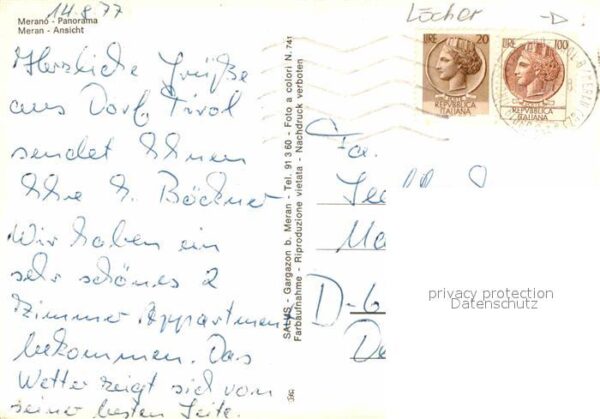 14.8.77
Merano - Panorama
Meran - Ansicht
Herzliche Grüße
aus Dorf Tirol
sendet Ihnen
Ihre H. Böckner
Wir haben ein
sehr schönes 2
Zimmer Appartment
bekommen. Das
Wetter zeigt sich von
seiner besten Seite.
SALUS - Gargazon b. Meran - Tel. 91 3 60 - Foto a colori N. 741
Farbaufnahme - Riproduzione vietata - Nachdruck verboten
Löcher
-D
LIRE 20
REPVBBLICA
ITALIANA
LIRE 100
REPVBBLICA
ITALIANA
Fa.
D-6
privacy protection
Datenschutz